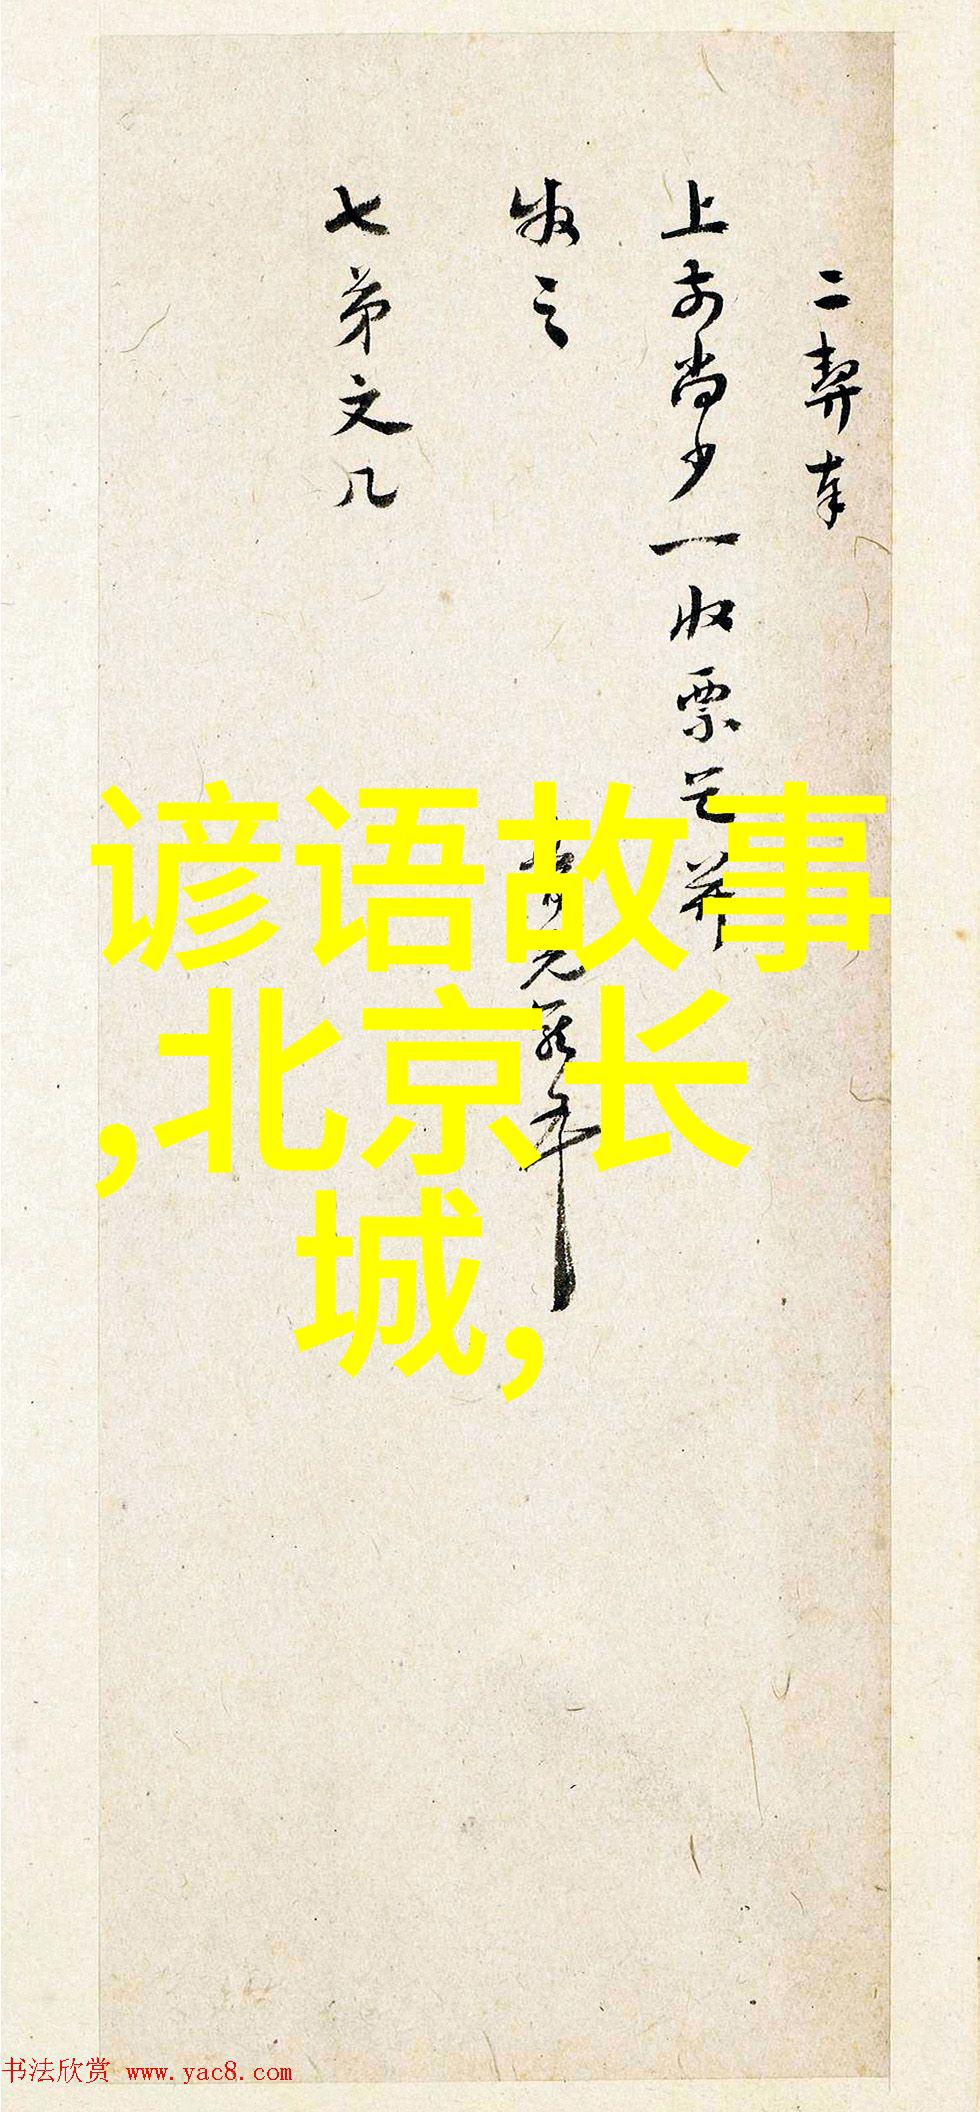 二契奉
上前尚少一收票是并
收之
七弟文几
谚语故事
,北京长
城,
书法欣赏 www.yac8.com